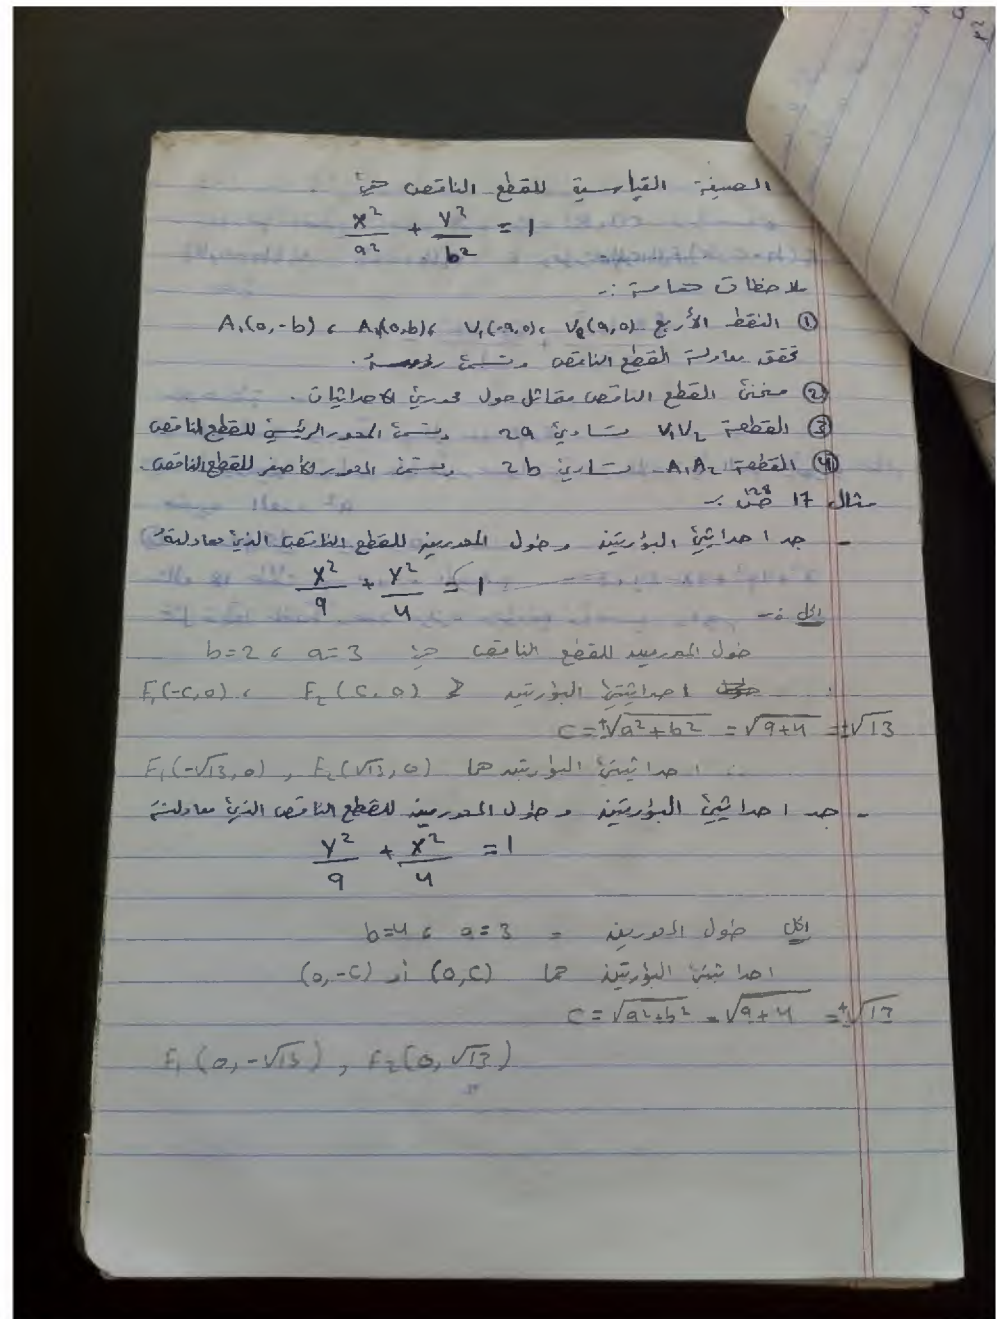 الصيغة القياسية للقطع الناقص هي
x²/a² + y²/b² = 1
ملاحظات هامة :-
① النقط الأربع V₂(a,0) ، V₁(-a,0) ، A₁(0,b) ، A₁(0,-b)
تحقق معادلة القطع الناقص وتسمى
② منحنى القطع الناقص متماثل حول محوري الاحداثيات .
③ القطعة V₁V₂ تساوي 2a وتسمى المحور الرئيسي للقطع الناقص
④ القطعة A₁A₂ تساوي 2b وتسمى المحور الأصغر للقطع الناقص .
مثال 17 ص 128 :-
- جد احداثيي البؤرتين وطول المحورين للقطع الناقص الذي معادلته
x²/9 + y²/4 = 1
الحل :-
طول المحورين للقطع الناقص هي a=3 ، b=2
احداثيتي البؤرتين F₂(C,0) ، F₁(-C,0)
C=±√a²+b² =√9+4 =±√13
∴ احداثيتي البؤرتين هما F₁(-√13,0) , F₂(√13,0)
- جد احداثيي البؤرتين وطول المحورين للقطع الناقص الذي معادلته
y²/9 + x²/4 = 1
الحل طول المحورين = a=3 ، b=4
احداثيتي البؤرتين هما (0,C) أو (0,-C)
C=√a²+b² =√9+4 =±√13
F₁(0,-√13) , F₂(0,√13)